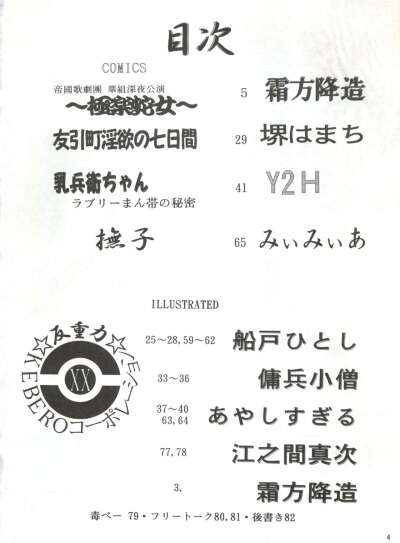 目次
COMICS
帝國歌劇團 華組深夜公演
～極楽蛇女～ 5 霜方降造
友引町淫欲の七日間 29 堺はまち
乳兵衛ちゃん 41 Y2H
ラブリーまん帯の秘密
撫子 65 みぃみぃあ
ILLUSTRATED
反重力
☆KEBEROコーポレーション☆
XX
25～28,59～62 船戸ひとし
33～36 傭兵小僧
37～40
63,64 あやしすぎる
77,78 江之間真次
3, 霜方降造
毒ペー 79・フリートーク80,81・後書き82
4